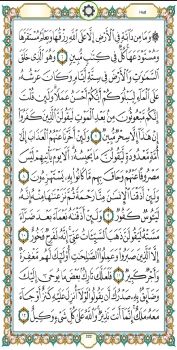 Hud
۞ وَمَا مِن دَآبَّةٍ فِى ٱلْأَرْضِ إِلَّا عَلَى ٱللَّهِ رِزْقُهَا وَيَعْلَمُ مُسْتَقَرَّهَا
وَمُسْتَوْدَعَهَا كُلٌّ فِى كِتَٰبٍ مُّبِينٍ ٦ وَهُوَ ٱلَّذِى خَلَقَ
ٱلسَّمَٰوَٰتِ وَٱلْأَرْضَ فِى سِتَّةِ أَيَّامٍ وَكَانَ عَرْشُهُۥ
عَلَى ٱلْمَآءِ لِيَبْلُوَكُمْ أَيُّكُمْ أَحْسَنُ عَمَلًا وَلَئِن قُلْتَ
إِنَّكُم مَّبْعُوثُونَ مِنۢ بَعْدِ ٱلْمَوْتِ لَيَقُولَنَّ ٱلَّذِينَ كَفَرُوٓا۟
إِنْ هَٰذَآ إِلَّا سِحْرٌ مُّبِينٌ ٧ وَلَئِنْ أَخَّرْنَا عَنْهُمُ ٱلْعَذَابَ إِلَىٰٓ
أُمَّةٍ مَّعْدُودَةٍ لَّيَقُولُنَّ مَا يَحْبِسُهُۥٓ أَلَا يَوْمَ يَأْتِيهِمْ لَيْسَ
مَصْرُوفًا عَنْهُمْ وَحَاقَ بِهِم مَّا كَانُوا۟ بِهِۦ يَسْتَهْزِءُونَ ٨
وَلَئِنْ أَذَقْنَا ٱلْإِنسَٰنَ مِنَّا رَحْمَةً ثُمَّ نَزَعْنَٰهَا مِنْهُ إِنَّهُۥ
لَيَـُٔوسٌ كَفُورٌ ٩ وَلَئِنْ أَذَقْنَٰهُ نَعْمَآءَ بَعْدَ ضَرَّآءَ
مَسَّتْهُ لَيَقُولَنَّ ذَهَبَ ٱلسَّيِّـَٔاتُ عَنِّىٓ إِنَّهُۥ لَفَرِحٌ فَخُورٌ ١٠
إِلَّا ٱلَّذِينَ صَبَرُوا۟ وَعَمِلُوا۟ ٱلصَّٰلِحَٰتِ أُو۟لَٰٓئِكَ لَهُم مَّغْفِرَةٌ
وَأَجْرٌ كَبِيرٌ ١١ فَلَعَلَّكَ تَارِكٌۢ بَعْضَ مَا يُوحَىٰٓ إِلَيْكَ
وَضَآئِقٌۢ بِهِۦ صَدْرُكَ أَن يَقُولُوا۟ لَوْلَآ أُنزِلَ عَلَيْهِ كَنزٌ أَوْ جَآءَ
مَعَهُۥ مَلَكٌ إِنَّمَآ أَنتَ نَذِيرٌ وَٱللَّهُ عَلَىٰ كُلِّ شَىْءٍ وَكِيلٌ ١٢
222